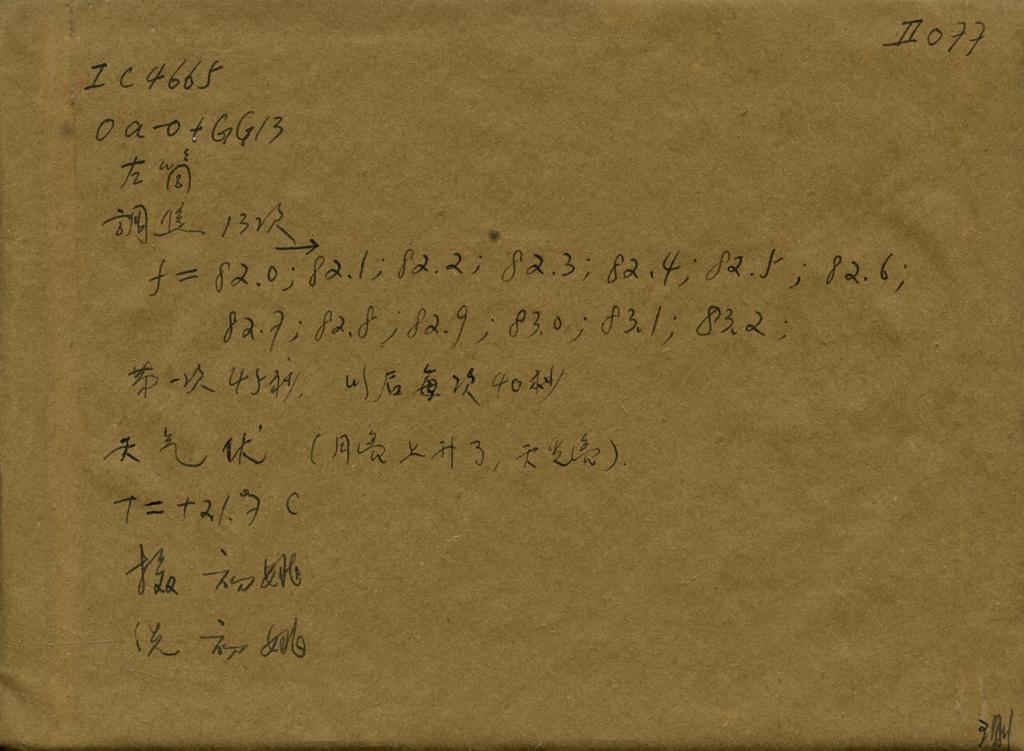 II 077
IC 4665
Oa-O + GG13
左筒
調焦 13次
f = 82.0; 82.1; 82.2; 82.3; 82.4; 82.5; 82.6;
82.7; 82.8; 82.9; 83.0; 83.1; 83.2;
第一次45秒, 以后每次40秒
天气 (月亮上升了, 天光亮).
T = +21.°7 C
摄 初 姚
洗 初 姚